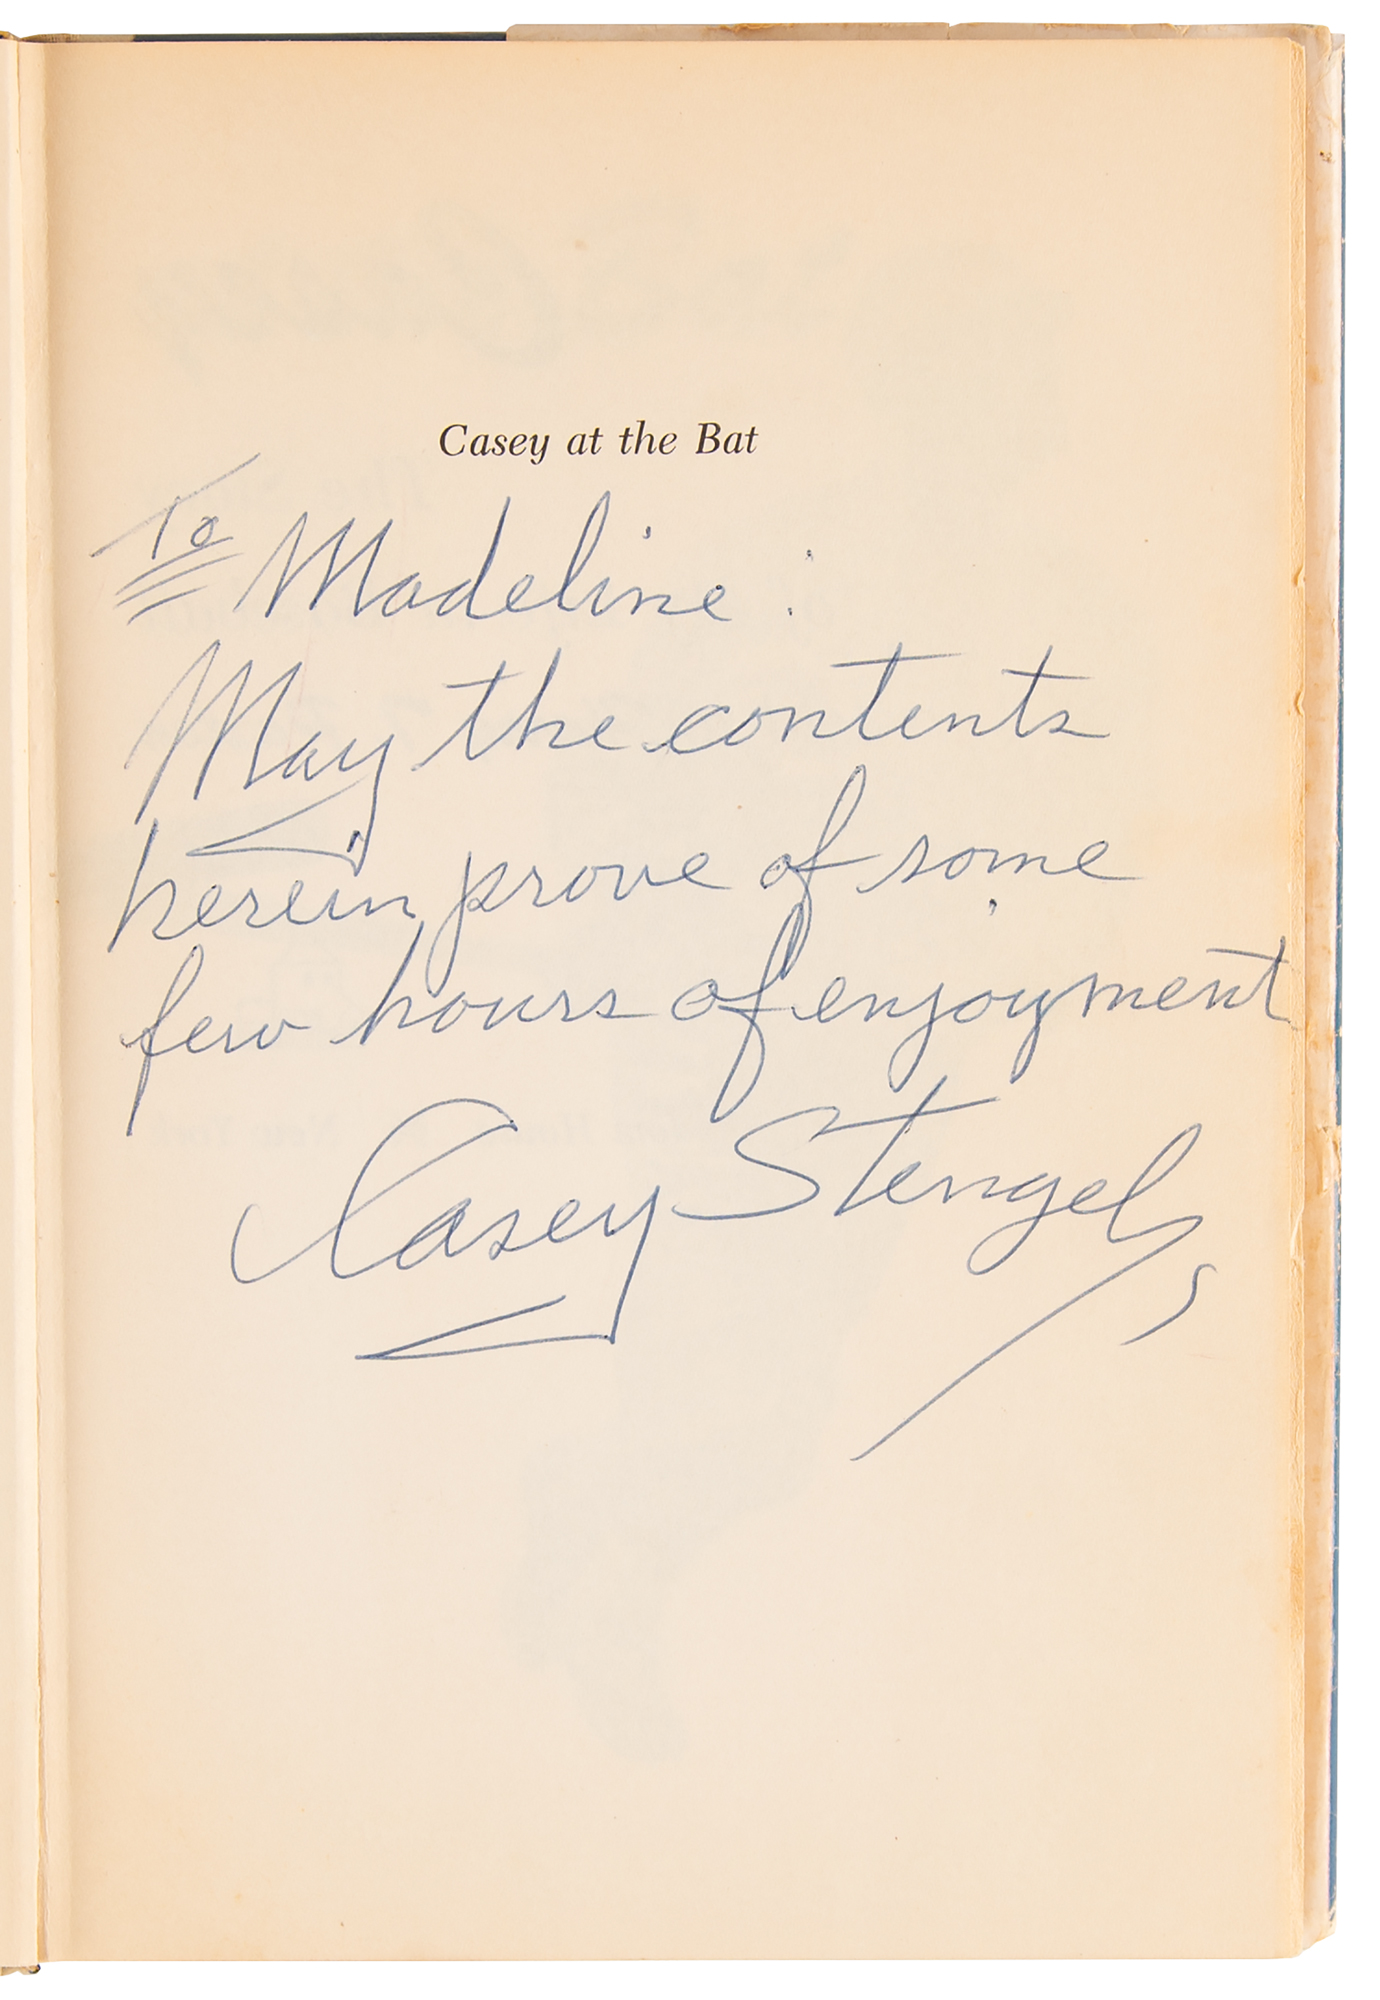 Casey at the Bat
To Madeline :
May the contents
herein prove of some
few hours of enjoyment
Casey Stengel